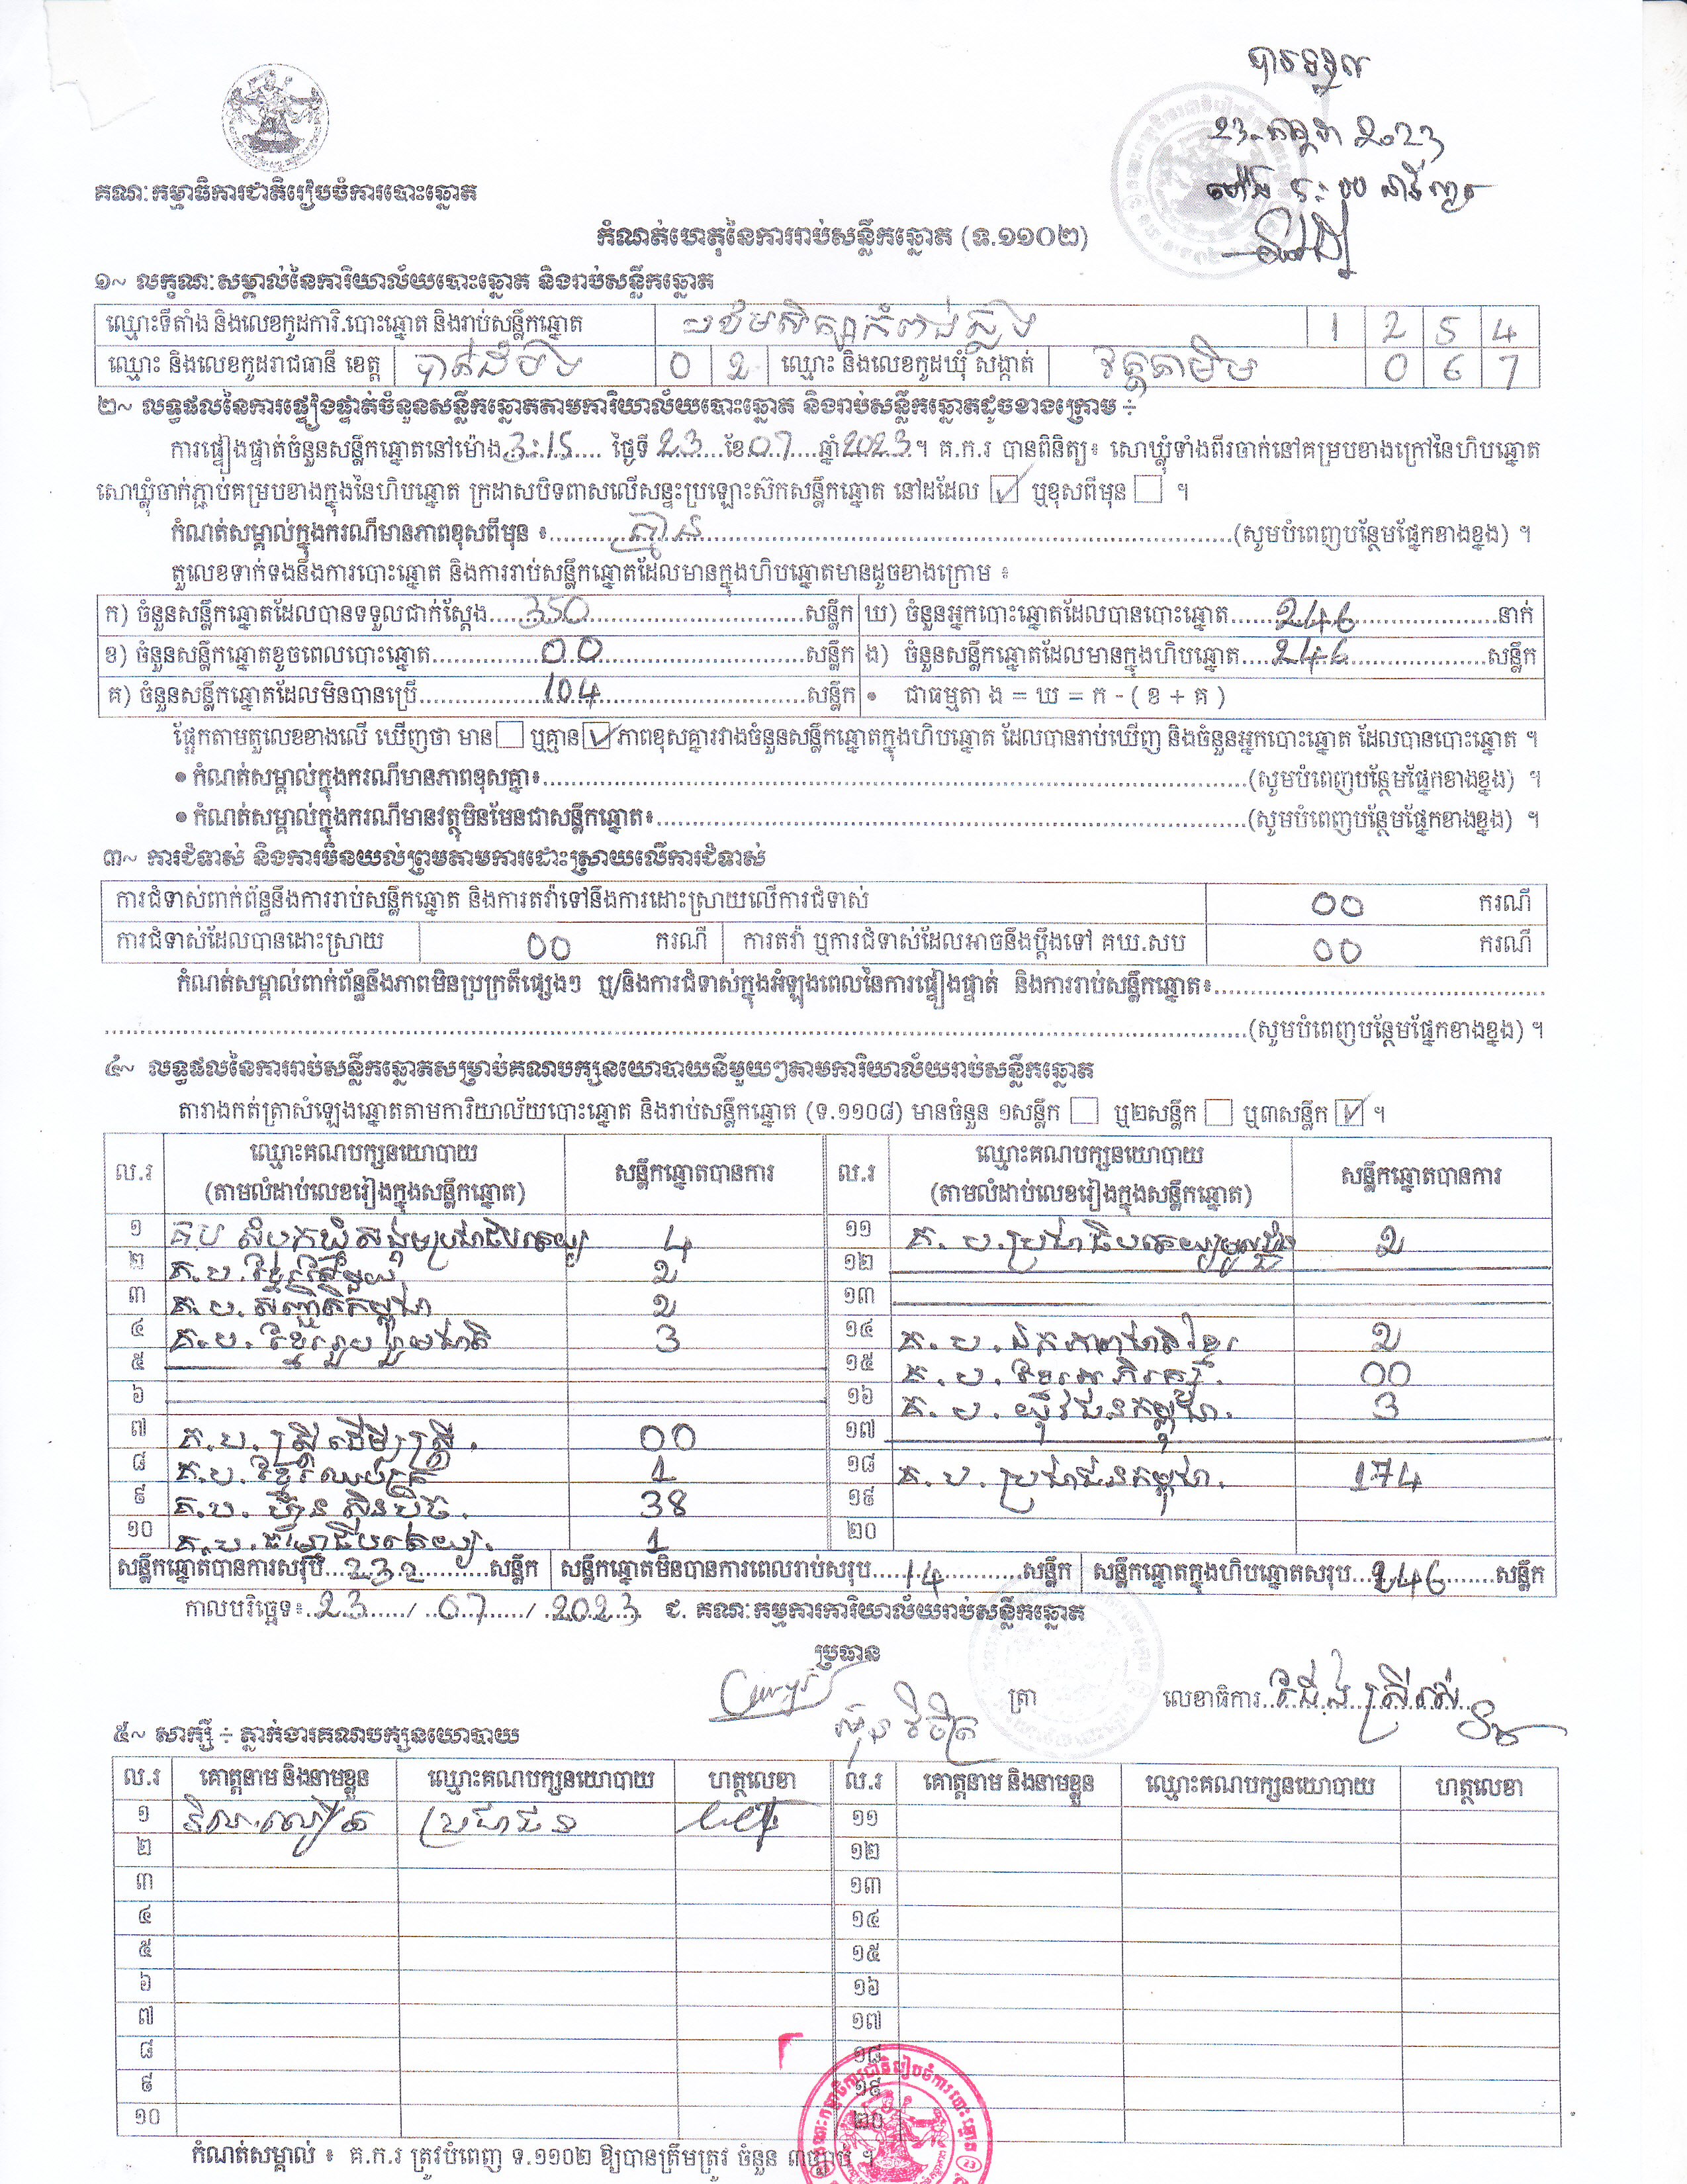 បានទទួល
23-កក្កដា 2023
គណៈកម្មាធិការជាតិរៀបចំការបោះឆ្នោត
កំណត់ហេតុនៃការរាប់សន្លឹកឆ្នោត (ទ.១១០២)
១~ លក្ខណៈសម្គាល់នៃការិយាល័យបោះឆ្នោត និងរាប់សន្លឹកឆ្នោត
ឈ្មោះទីតាំង និងលេខកូដការិ.បោះឆ្នោត និងរាប់សន្លឹកឆ្នោត បឋមសិក្សាកំពង់ 1 2 5 4
ឈ្មោះ និងលេខកូដរាជធានី ខេត្ត បាត់ដំបង 0 2 ឈ្មោះ និងលេខកូដឃុំ សង្កាត់ វត្តតាមិម 0 6 7
២~ លទ្ធផលនៃការផ្ទៀងផ្ទាត់ចំនួនសន្លឹកឆ្នោតតាមការិយាល័យបោះឆ្នោត និងរាប់សន្លឹកឆ្នោតដូចខាងក្រោម ÷
ការផ្ទៀងផ្ទាត់ចំនួនសន្លឹកឆ្នោតនៅម៉ោង 3:15 ថ្ងៃទី 23 ខែ 07 ឆ្នាំ 2023។ គ.ក.រ បានពិនិត្យ៖ សោឃ្លុំទាំងពីរចាក់នៅគម្របខាងក្រៅនៃហិបឆ្នោត
សោឃ្លុំចាក់ភ្ជាប់គម្របខាងក្នុងនៃហិបឆ្នោត ក្រដាសបិទពាសលើសន្ទះប្រឡោះស៊កសន្លឹកឆ្នោត នៅដដែល ☑ ឬខុសពីមុន ☐ ។
កំណត់សម្គាល់ក្នុងករណីមានភាពខុសពីមុន ៖ គ្មាន (សូមបំពេញបន្ថែមផ្នែកខាងខ្នង) ។
តួលេខទាក់ទងនឹងការបោះឆ្នោត និងការរាប់សន្លឹកឆ្នោតដែលមានក្នុងហិបឆ្នោតមានដូចខាងក្រោម ៖
ក) ចំនួនសន្លឹកឆ្នោតដែលបានទទួលជាក់ស្តែង 350 សន្លឹក ឃ) ចំនួនអ្នកបោះឆ្នោតដែលបានបោះឆ្នោត 246 នាក់
ខ) ចំនួនសន្លឹកឆ្នោតខូចពេលបោះឆ្នោត 00 សន្លឹក ង) ចំនួនសន្លឹកឆ្នោតដែលមានក្នុងហិបឆ្នោត 246 សន្លឹក
គ) ចំនួនសន្លឹកឆ្នោតដែលមិនបានប្រើ 104 សន្លឹក • ជាធម្មតា ង = ឃ = ក - ( ខ + គ )
ផ្អែកតាមតួលេខខាងលើ ឃើញថា មាន ☐ ឬគ្មាន ☑ ភាពខុសគ្នារវាងចំនួនសន្លឹកឆ្នោតក្នុងហិបឆ្នោត ដែលបានរាប់ឃើញ និងចំនួនអ្នកបោះឆ្នោត ដែលបានបោះឆ្នោត ។
• កំណត់សម្គាល់ក្នុងករណីមានភាពខុសគ្នា៖ (សូមបំពេញបន្ថែមផ្នែកខាងខ្នង) ។
• កំណត់សម្គាល់ក្នុងករណីមានវត្ថុមិនមែនជាសន្លឹកឆ្នោត៖ (សូមបំពេញបន្ថែមផ្នែកខាងខ្នង) ។
៣~ ការជំទាស់ និងការមិនយល់ព្រមតាមការដោះស្រាយលើការជំទាស់
ការជំទាស់ពាក់ព័ន្ធនឹងការរាប់សន្លឹកឆ្នោត និងការតវ៉ាទៅនឹងការដោះស្រាយលើការជំទាស់ 00 ករណី
ការជំទាស់ដែលបានដោះស្រាយ 00 ករណី ការតវ៉ា ឬការជំទាស់ដែលអាចនឹងប្តឹងទៅ គឃ.សប 00 ករណី
កំណត់សម្គាល់ពាក់ព័ន្ធនឹងភាពមិនប្រក្រតីផ្សេងៗ ឬ/និងការជំទាស់ក្នុងអំឡុងពេលនៃការផ្ទៀងផ្ទាត់ និងការរាប់សន្លឹកឆ្នោត៖
(សូមបំពេញបន្ថែមផ្នែកខាងខ្នង) ។
៤~ លទ្ធផលនៃការរាប់សន្លឹកឆ្នោតសម្រាប់គណបក្សនយោបាយនីមួយៗតាមការិយាល័យរាប់សន្លឹកឆ្នោត
តារាងកត់ត្រាសំឡេងឆ្នោតតាមការិយាល័យបោះឆ្នោត និងរាប់សន្លឹកឆ្នោត (ទ.១១០៨) មានចំនួន ១សន្លឹក ☐ ឬ២សន្លឹក ☐ ឬ៣សន្លឹក ☑ ។
ល.រ ឈ្មោះគណបក្សនយោបាយ (តាមលំដាប់លេខរៀងក្នុងសន្លឹកឆ្នោត) សន្លឹកឆ្នោតបានការ ល.រ ឈ្មោះគណបក្សនយោបាយ (តាមលំដាប់លេខរៀងក្នុងសន្លឹកឆ្នោត) សន្លឹកឆ្នោតបានការ
១ គ.ប សំបុកឃ្មុំសង្គមប្រជាធិបតេយ្យ 4 ១១ គ.ប.ប្រជាធិបតេយ្យមូលដ្ឋាន 2
២ គ.ប.ខ្មែរតែមួយ 2 ១២
៣ គ.ប.សញ្ជាតិកម្ពុជា 2 ១៣
៤ គ.ប.ខ្មែររួបរួមជាតិ 3 ១៤ គ.ប.ឯកភាពជាតិខ្មែរ 2
៥ ១៥ គ.ប.ខ្មែរអភិរក្ស 00
៦ ១៦ គ.ប.យុវជនកម្ពុជា. 3
៧ គ.ប.ស្ត្រីដើម្បីស្ត្រី. 00 ១៧
៨ គ.ប.ខ្មែរឈប់ក្រ 1 ១៨ គ.ប.ប្រជាជនកម្ពុជា. 174
៩ គ.ប.ហ៊្វុនស៊ិនប៉ិច. 38 ១៩
១០ គ.ប.ធម្មាធិបតេយ្យ. 1 ២០
សន្លឹកឆ្នោតបានការសរុប 232 សន្លឹក សន្លឹកឆ្នោតមិនបានការពេលរាប់សរុប 14 សន្លឹក សន្លឹកឆ្នោតក្នុងហិបឆ្នោតសរុប 246 សន្លឹក
កាលបរិច្ឆេទ៖ 23 / 07 / 2023 ជ. គណៈកម្មការការិយាល័យរាប់សន្លឹកឆ្នោត
ប្រធាន
ត្រា លេខាធិការ
៥~ សាក្សី ÷ ភ្នាក់ងារគណបក្សនយោបាយ
ល.រ គោត្តនាម និងនាមខ្លួន ឈ្មោះគណបក្សនយោបាយ ហត្ថលេខា ល.រ គោត្តនាម និងនាមខ្លួន ឈ្មោះគណបក្សនយោបាយ ហត្ថលេខា
១ ប្រជាជន ១១
២ ១២
៣ ១៣
៤ ១៤
៥ ១៥
៦ ១៦
៧ ១៧
៨ ១៨
៩ ១៩
១០ ២០
កំណត់សម្គាល់ ៖ គ.ក.រ ត្រូវបំពេញ ទ.១១០២ ឱ្យបានត្រឹមត្រូវ ចំនួន ៣ច្បាប់ ។